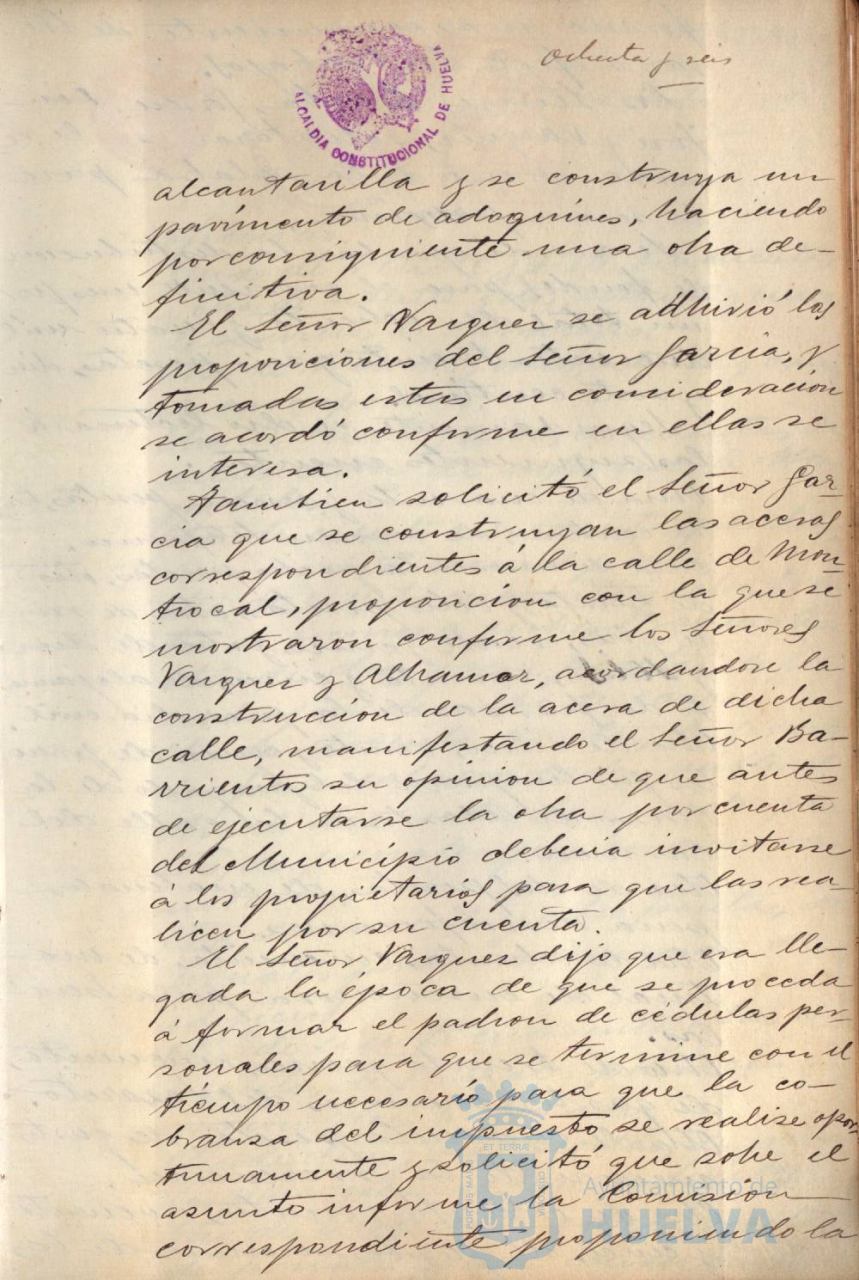 Ochenta y seis
ALCALDIA CONSTITUCIONAL DE HUELVA
alcantarilla y se construya un
pavimento de adoquines, haciendo
por consiguiente una obra de-
finitiva.
El Señor Vazquez se adhirió las
proposiciones del Señor Garcia, y
tomadas estas en consideración
se acordó conforme en ellas se
interesa.
Tambien solicitó el Señor Gar-
cia que se construyan las aceras
correspondientes á la calle de Mon-
trocal, proposicion con la que se
mostraron conforme los Señores
Vazquez y Alhamar, acordandose la
construccion de la acera de dicha
calle, manifestando el Señor Ba-
rrientos su opinion de que antes
de ejecutarse la obra por cuenta
del Municipio deberia invitarse
á los propietarios para que las rea-
licen por su cuenta.
El Señor Vazquez dijo que era lle-
gada la época de que se proceda
á formar el padron de cédulas per-
sonales para que se termine con el
tiempo necesario para que la co-
branza del impuesto se realise opor-
tunamente y solicitó que sobre el
asunto informe la Comision
correspondiente proponiendo la
Ayuntamiento de
HUELVA